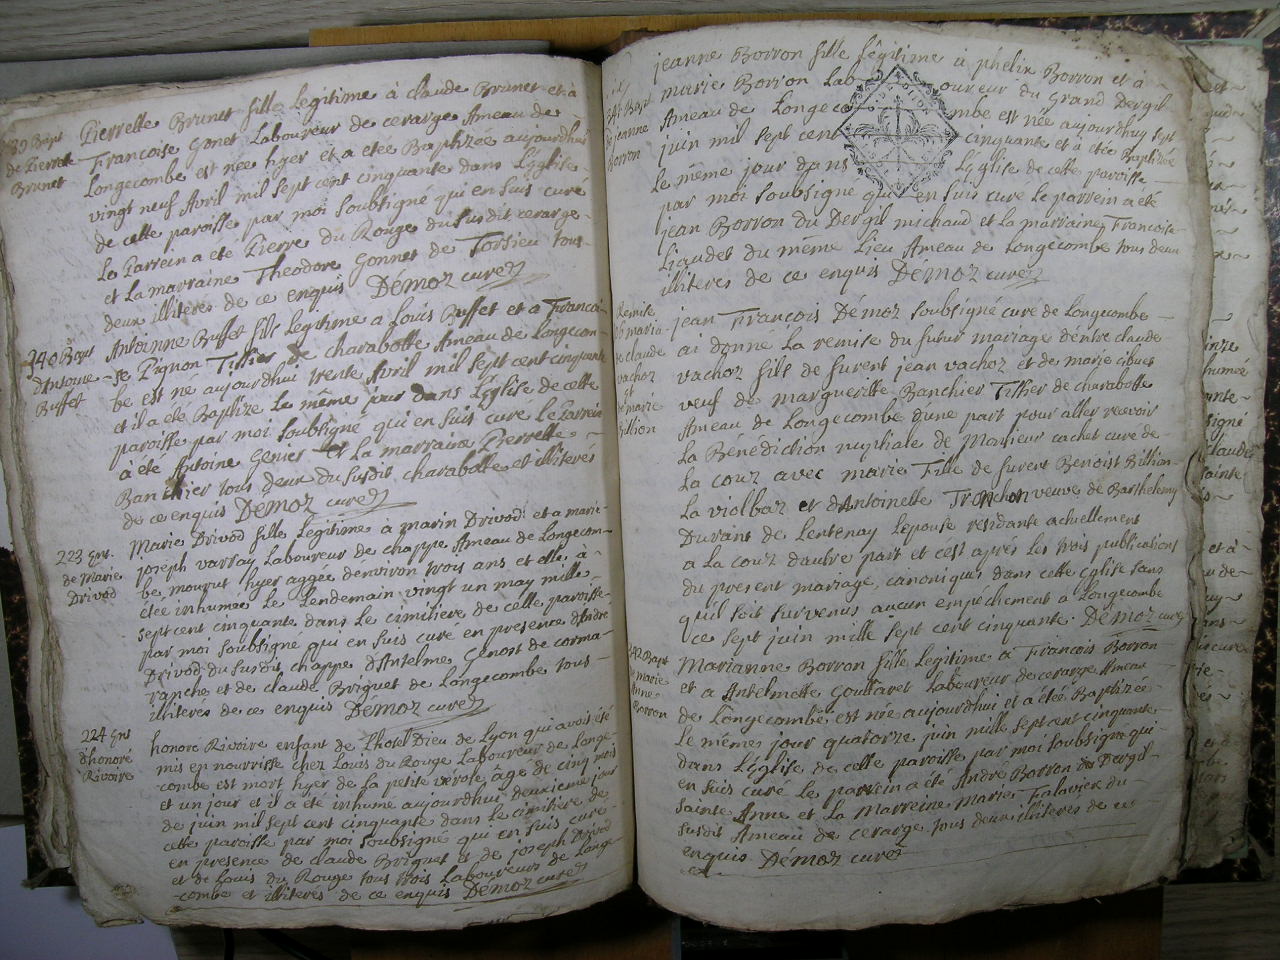 39 Bapt
de Pierrette
Brunet
Pierrette Brunet fille Legitime à claude Brunet et à
Francoise gonet Laboureur de cerarge Ameau de
Longecombe est née hyer et a etée Baptizée aujourdhui
vingt neuf Avril mil sept cent cinquante dans L'Eglise
de cette paroisse par moi soubsigné qui en suis curé
Le Parrein a été Pierre du Rouge du susdit cerarge
et La marraine Theodore Gonnet de Torsieu tous
deux illiteres de ce enquis Démoz curez
240 Bapt
d'Antoine
Buffet
Antoinne Buffet fils Legitime a Louis Buffet et a Francoi-
se Pignon Tissier de charabotte Ameau de Longecom-
be est né aujourdhui trente Avril mil sept cent cinquante
et il a été Baptizé Le même jour dans L'Eglise de cette
paroisse par moi soubsigné qui en suis curé le Parrein
à été Antoine Genier et La marraine Pierrette
Banchier tous deux du susdit charabotte et illiteres
de ce enquis Démoz curez
223 Ent.
de Marie
Drivod
Marie Drivod fille Legitime à marin Drivod et a marie
joseph varray Laboureur de chappe Ameau de Longecom-
be, mourut hyer aggée d'environ trois ans et elle à
étée inhumée Le Lendemain vingt un may mille
sept cent cinquante dans Le cimitiere de cette paroisse
par moi soubsigné qui en suis curé en presence d'André
Drivod du susdit chappe d'Antelme Genost de corma-
ranche et de claude Briguet de Longecombe tous
illiteres de ce enquis Démoz curez
224 Ent
d'honoré
Rivoire
honoré Rivoire enfant de L'hotel Dieu de Lyon qui avoit été
mis en nourrisse chez Louis du Rouge Laboureur de Longe-
combe est mort hyer de la petite verole, agé de cinq mois
et un jour et il a été inhumé aujourdhui deuxieme jour
de juin mil sept cent cinquante dans Le cimitiere de
cette paroisse par moi soubsigné qui en suis curé
en presence de claude Briguet et de joseph Drivod
et de Louis du Rouge tous trois Laboureurs de Longe
-combe et illiterés de ce enquis Démoz curez
241 Bapt
de jeanne
Borron
jeanne Borron fille Légitime à phelix Borron et à
marie Borron Laboureur du Grand Dergil
Ameau de Longecombe est née aujourdhuy sept
juin mil sept cent cinquante et à étée Baptizée
Le même jour dans L'Eglise de cette paroisse
par moi soubsigné qui en suis curé Le parrein a été
jean Borron du Dergil michaud et La marraine Francoise
Liaudet du même Lieu Ameau de Longecombe tous deux
illiteres de ce enquis Démoz curez
Remise
de claude
vachoz
et
marie
Billion
jean François Démoz soubsigné curé de Longecombe
ai donné La remise du futur mariage d'entre claude
vachoz fils de furent jean vachoz et de marie cibues
veuf de margueritte Banchier Tissier de charabotte
Ameau de Longecombe d'une part pour aller recevoir
La Bénédiction nuptiale de Monsieur cachet curé de
La couz avec marie Fille de furent Benoist Billion
La violbaz et d'Antoinette Tronchon veuve de Barthelemy
Durant de Lentenay L'epouse residante actuellement
a La couz d'autre part et cest aprés Les trois publications
du present mariage, canoniques dans cette Eglise sans
quil soit survenus aucun empéchement à Longecombe
ce sept juin mille sept cent cinquante. Démoz curez
242 Bapt
de marie
Anne
Borron
Marianne Borron fille Legitime a François Borron
et a Antelmette Gouttaret Laboureur de cerarge Ameau
de Longecombe, est née aujourdhui et a étée Baptizée
Le même jour quatorze juin mille sept cent cinquante
dans L'Eglise de cette paroisse par moi soubsigné qui
en suis curé Le parrein a été André Borron de Dergil
sainte Anne et La Marreine Marie Talavier du
susdit Ameau de cerarge, tous deux illiteres de ce
enquis Démoz curez